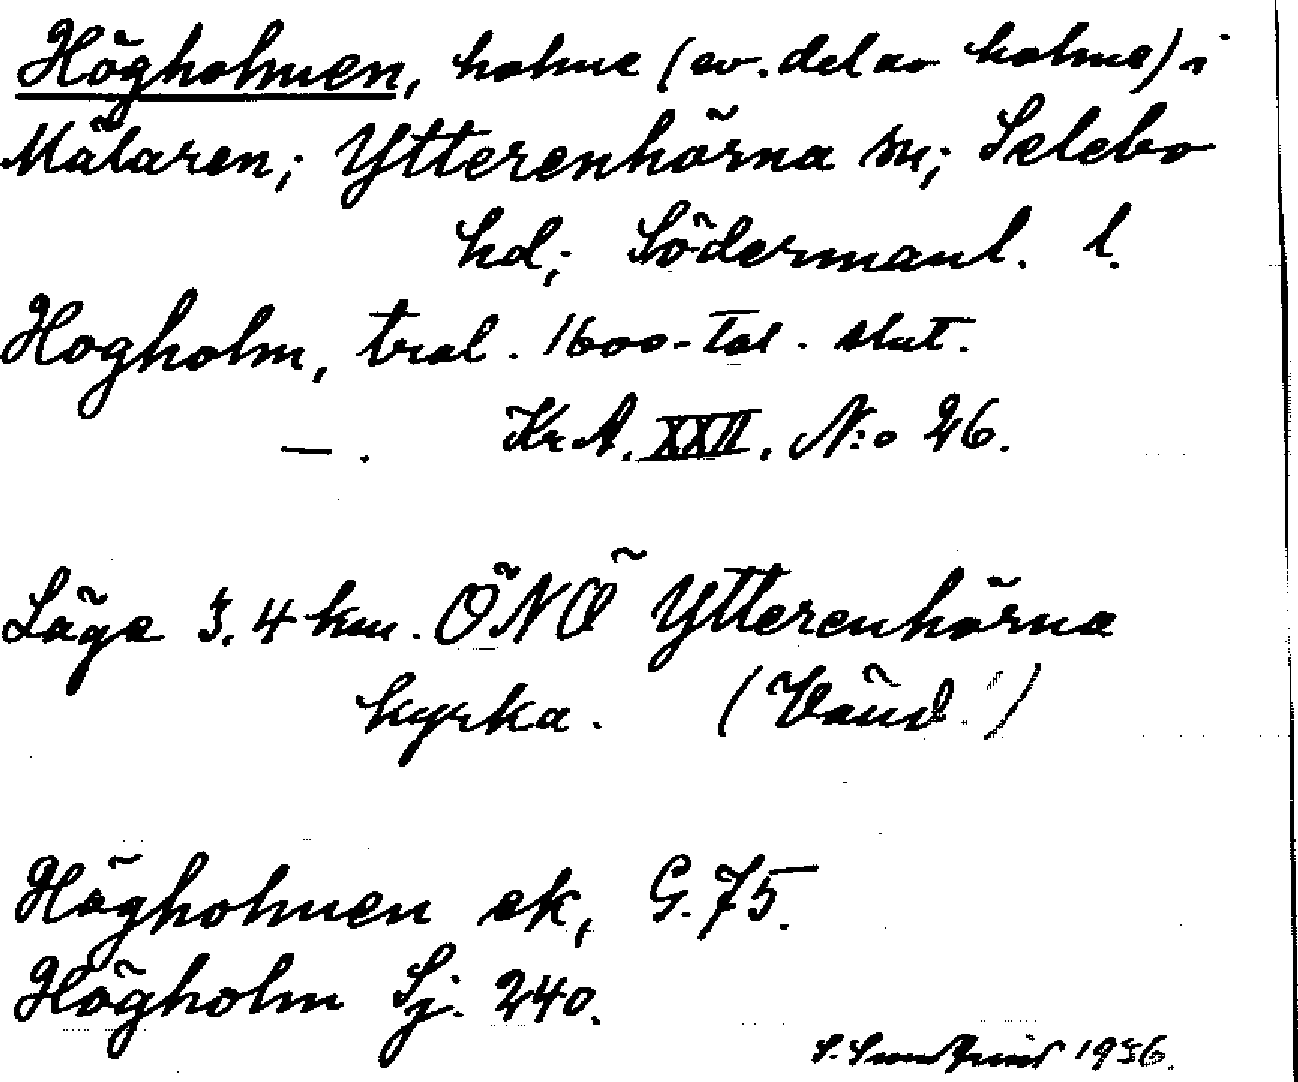 Högholmen, holme (ev. del av holme) i
Mälaren; Ytterenhörna sn; Selebo
hd; Södermanl. l.
Hogholm, tral. 1600-tal. slut.
—. KrA. XXII. N:o 26.
Läge 3.4 km. ÖNÖ Ytterenhörna
kyrka. (Vänd!)
Högholmen ek, G. 75.
Högholm Sj. 240.
S. 1936.